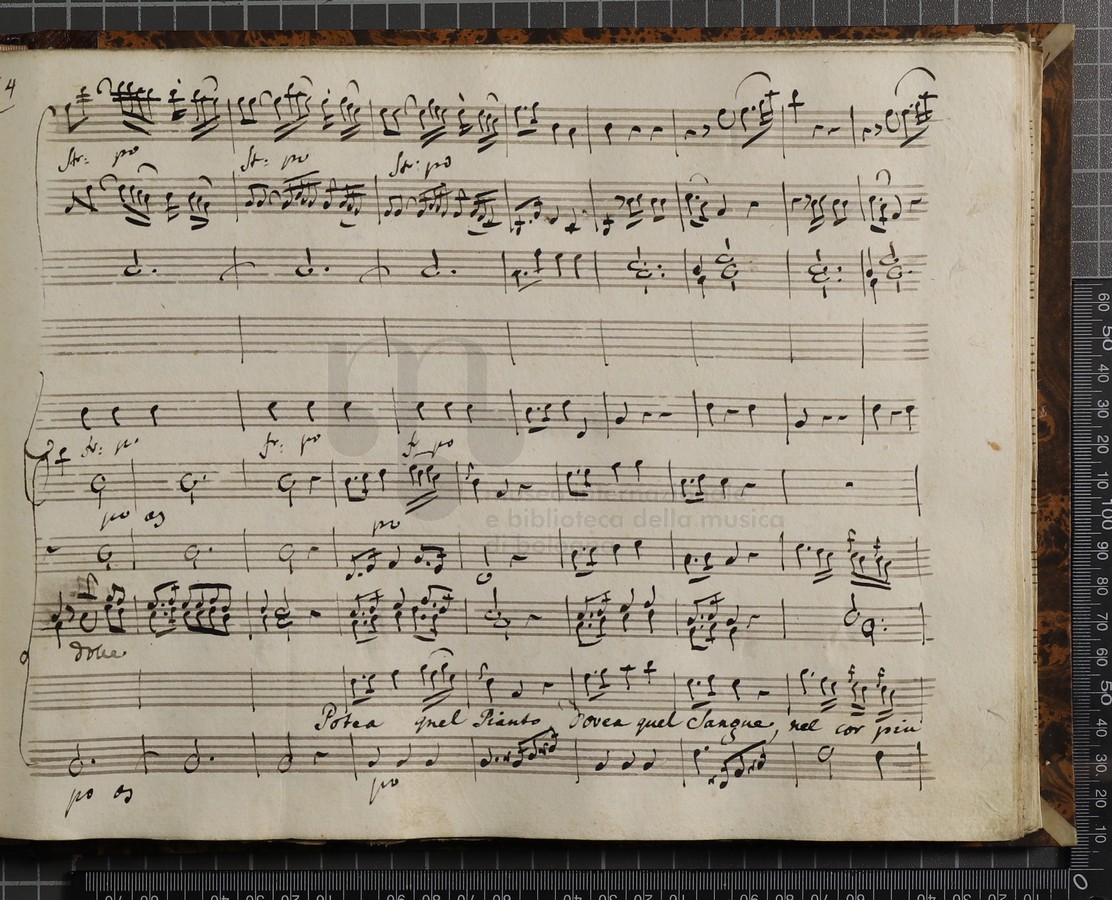 4
Str: po St: po Str: po
fr: po fr: po fr: po
po
po
dolce
Potea quel Pianto, Dovea quel Sangue, nel cor piu
po po
museo internazionale
e biblioteca della musica
di bologna
60 50 40 30 20 10
100 90 80 70 60 50 40 30 20 10
0